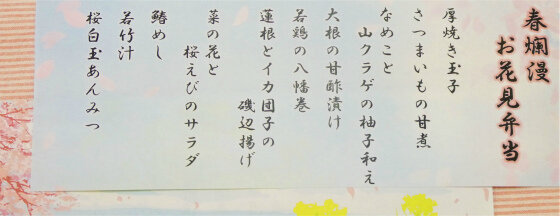 春爛漫
お花見弁当
厚焼き玉子
さつまいもの甘煮
なめこと
山クラゲの柚子和え
大根の甘酢漬け
若鶏の八幡巻
蓮根とイカ団子の
磯辺揚げ
菜の花と
桜えびのサラダ
鰆めし
若竹汁
桜白玉あんみつ